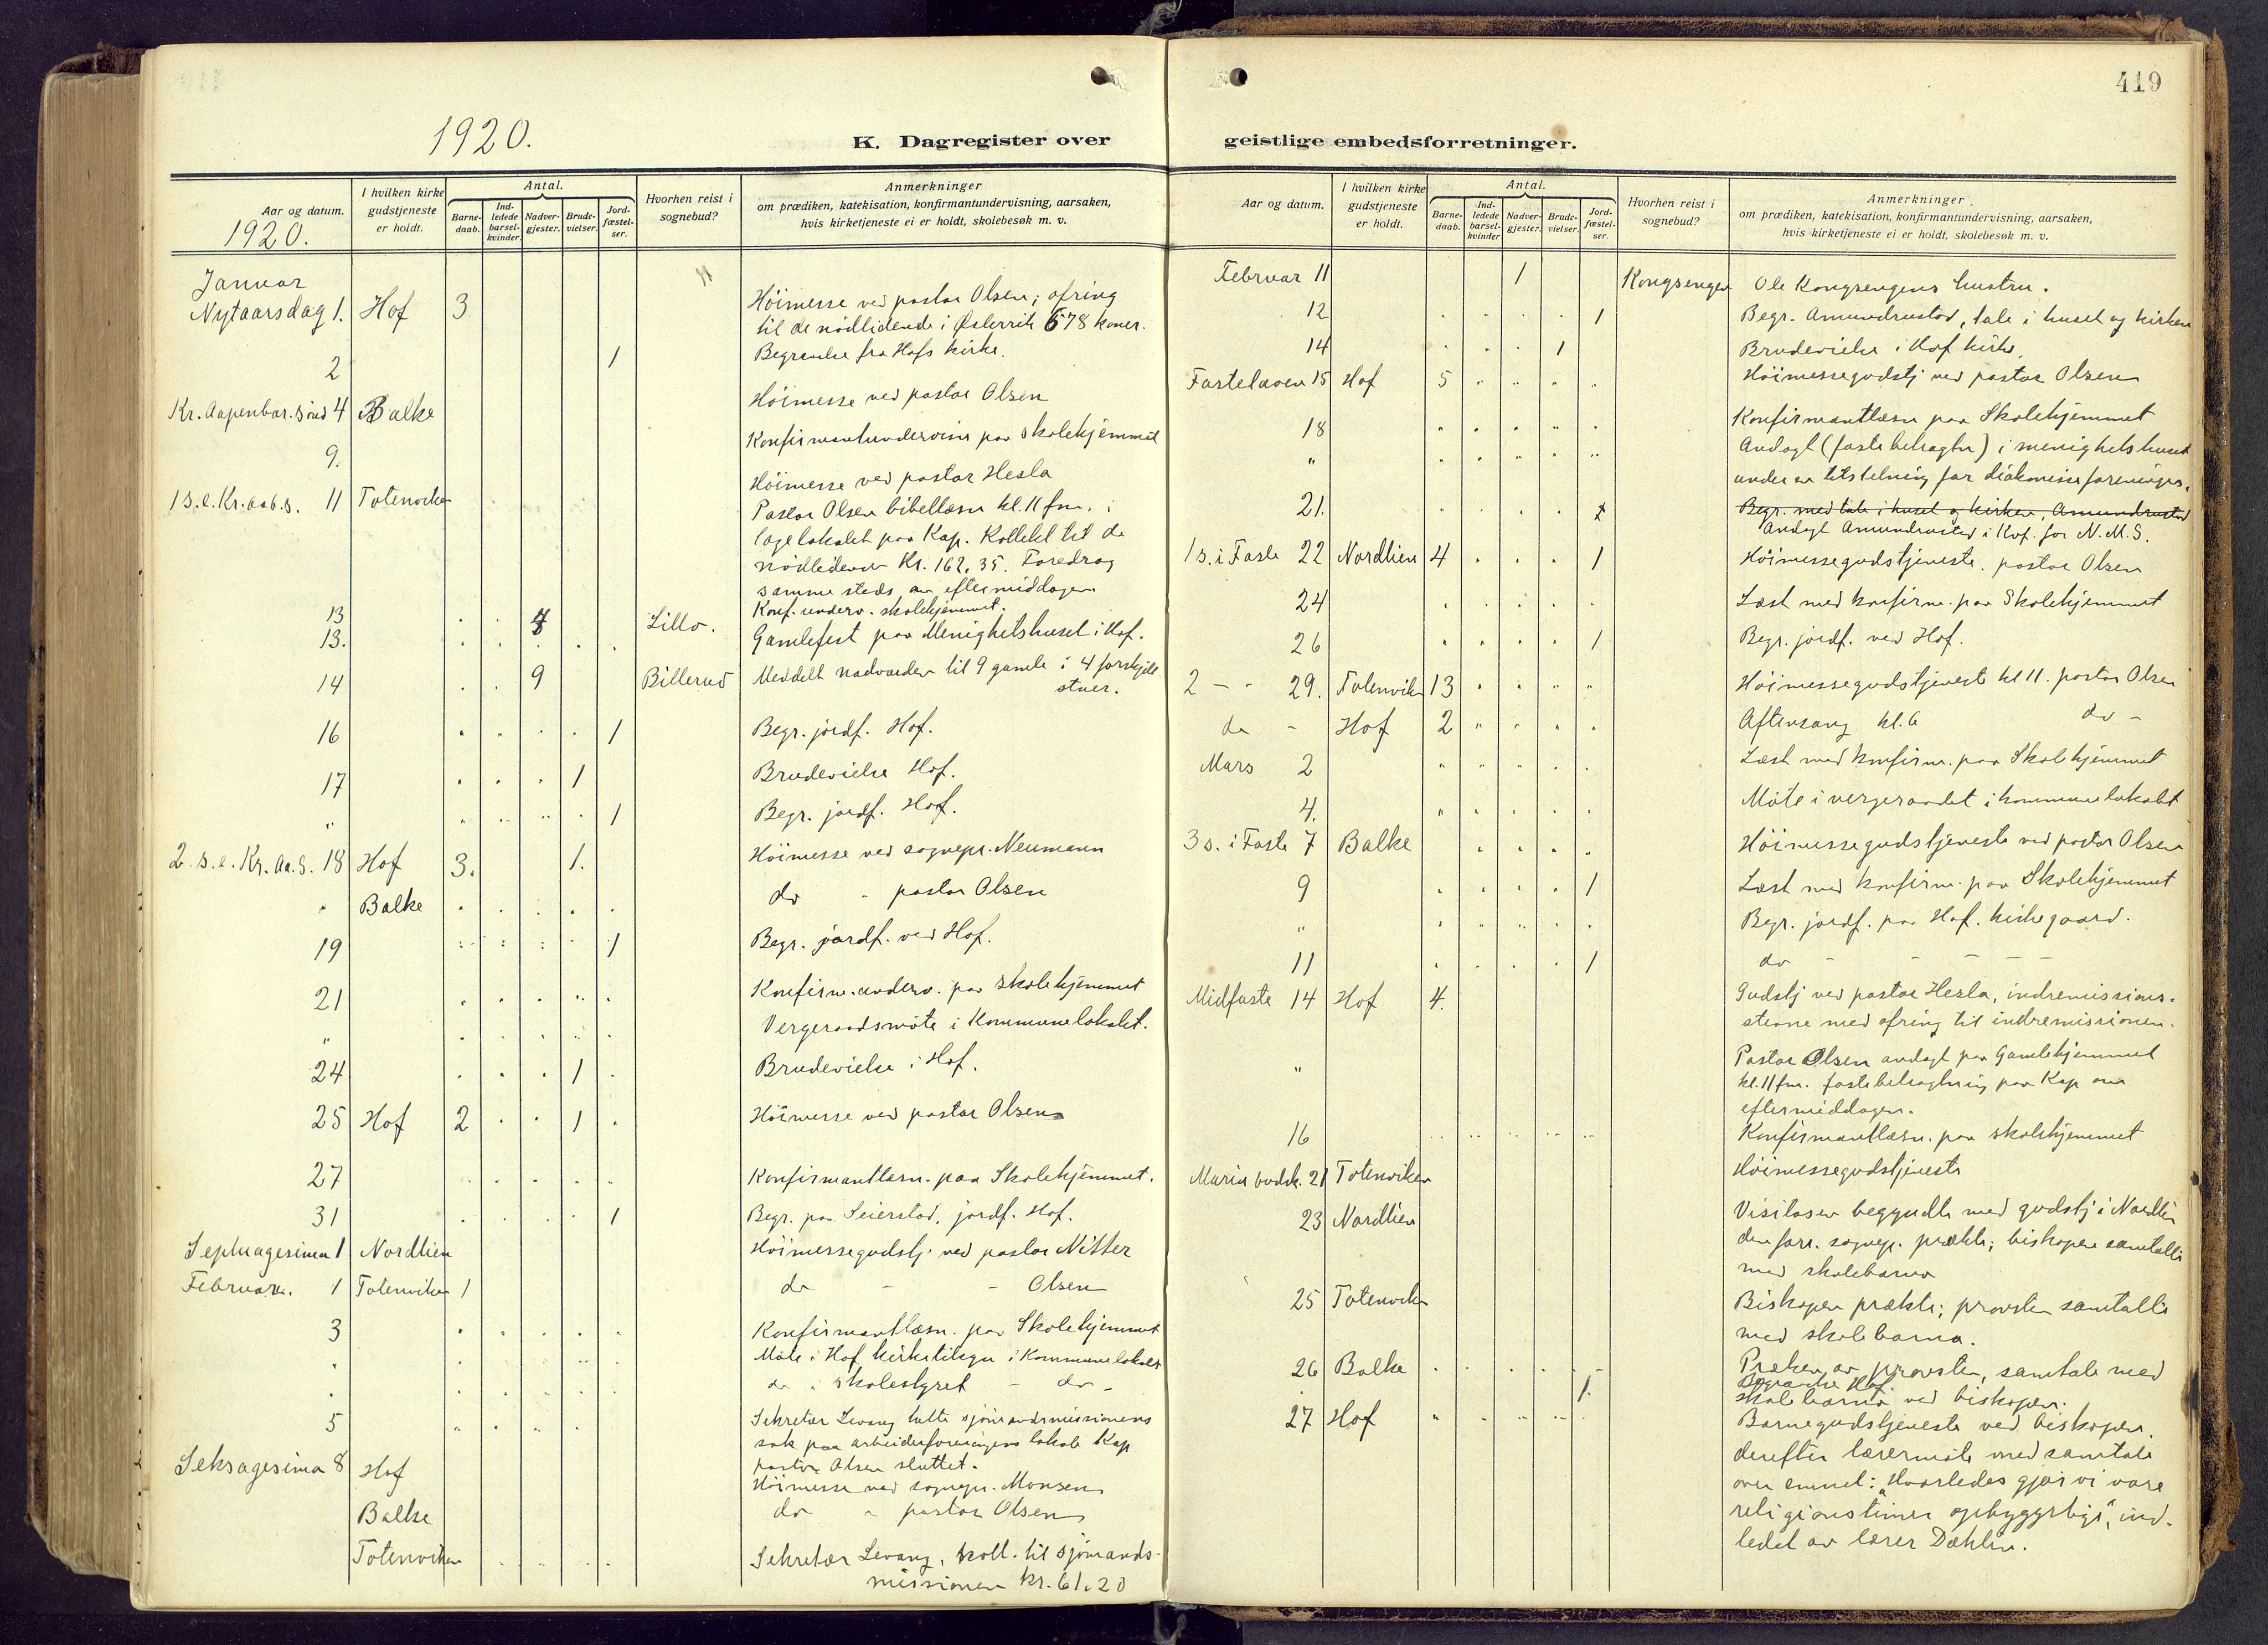 419
1920.
K. Dagregister over
geistlige embedsforretninger.
Aar og datum.
1920.
I hvilken kirke gudstjeneste er holdt.
Antal.
Barne-daab.
Ind-ledede barsel-kvinder.
Nadver-gjester.
Brude-vielser.
Jord-fæstel-ser.
Hvorhen reist i sognebud?
Anmerkninger
om prædiken, katekisation, konfirmantundervisning, aarsaken,
hvis kirketjeneste ei er holdt, skolebesøk m. v.
Januar
Nytaarsdag 1. Hof 3 Höimesse ved pastor Olsen; ofring
til de nödlidende i Østerrik 678 kroner.
2 1 Begravelse fra Hofs kirke.
Kr. Aapenbar. sönd 4 Balke Höimesse ved pastor Olsen
9. Konfirmantundervisn paa Skolehjemmet
1 s. e. Kr. aab. s. 11 Totenviken Höimesse ved pastor Hesla
Pastor Olsen bibellæsn kl. 11 fm. i
logelokalet paa Kap. Kollekt til de
nödlidende Kr. 162.35. Foredrag
samme steds om eftermiddagen.
13 Lillo. Konf. underv. skolehjemmet.
13. Gamlefest paa Menighetshuset i Hof.
14 9 Billerud Meddelt nadverden til 9 gamle i 4 forskjell
stuer.
16 1 Begr. jordf. Hof.
17 1 Brudevielse Hof.
" 1 Begr. jordf. Hof.
2 s. e. Kr. Aa. S. 18 Hof 3. 1. Höimesse ved sognepr. Neumann
" Balke do - pastor Olsen
19 1 Begr. jordf. ved Hof.
21 Konfirm. underv. paa skolehjemmet
" Vergeraadsmöte i Kommunelokalet.
24 1 Brudevielse i Hof.
25 Hof 2 1 Höimesse ved pastor Olsen
27 Konfirmantlæsn. paa Skolehjemmet.
31 1 Begr. paa Seierstad, jordf. Hof.
Septuagesima 1 Nordlien Höimessegudstj. ved pastor Nitter
Februar. 1 Totenviken 1 do - - Olsen
3 Konfirmantlæsn. paa Skolehjemmet
" Möte i Hof kirketilsyn i Kommunelokalet
" do i skolestyret - do -
5 Sekretær Levang talte sjömandsmissionens
sak paa arbeiderforeningens lokale Kap
pastor Olsen sluttet.
Seksagesima 8 Hof Höimesse ved sognepr. Monsen
Balke do - pastor Olsen
Totenviken Sekretær Levang, koll. til sjömands-
missionen kr. 61.20
Aar og datum.
I hvilken kirke gudstjeneste er holdt.
Antal.
Barne-daab.
Ind-ledede barsel-kvinder.
Nadver-gjester.
Brude-vielser.
Jord-fæstel-ser.
Hvorhen reist i sognebud?
Anmerkninger
om prædiken, katekisation, konfirmantundervisning, aarsaken,
hvis kirketjeneste ei er holdt, skolebesøk m. v.
Februar 11 1 Kongsengen Ole Kongsengens hustru.
12 1 Begr. Amundrustad, tale i huset og kirken
14 1 Brudevielse i Hof kirke.
Fastelaven 15 Hof 5 Höimessegudstj ved pastor Olsen
18 Konfirmantlæsn paa Skolehjemmet
" Andagt (fastebetragtn) i menighetshuset
under en tilstelning for diakonisseforeningen.
21. 1 Begr. med tale i huset og kirken, Amundrustad
Andagt Amundrustad i Kvf. for N. M. S.
1 s. i Faste 22 Nordlien 4 1 Höimessegudstjeneste. pastor Olsen
24 Læst med konfirm. paa Skolehjemmet
26 1 Begr. jordf. ved Hof.
2 - - 29. Totenviken 13 Höimessegudstjeneste kl 11. pastor Olsen
do - Hof 2 Aftensang kl. 6 do -
Mars 2 Læst med konfirm. paa Skolehjemmet
4. Möte i vergeraadet i kommunelokalet
3 s. i Faste 7 Balke Höimessegudstjeneste ved pastor Olsen
9 1 Læst med konfirm. paa Skolehjemmet
" Begr. jordf. paa Hof. kirkegaard.
11 1 do - - - - -
Midfaste 14 Hof 4. Gudstj ved pastor Hesla, indremissions-
stevne med ofring til indremissionen.
" Pastor Olsen andagt paa Gamlehjemmet
kl. 11 fm. fastebetragtning paa Kap om
eftermiddagen.
16 Konfirmantlæsn. paa skolehjemmet
Mariæ budsk. 21 Totenviken Höimessegudstjeneste
23 Nordlien Visitasen begyndte med gudstj i Nordlien
den forr. sognep. prækte; biskopen samtalte
med skolebarna
25 Totenviken Biskopen prækte; provsten samtalte
med skolebarna.
26 Balke Præken av provsten, samtale med
1. Begravelse Hof
skolebarna ved biskopen.
27 Hof Barnegudstjeneste ved biskopen.
derefter lærermöte med samtale
over emnet: "Hvorledes gjör vi vore
religionstimer opbyggelige", ind-
ledet av lærer Dæhlin.